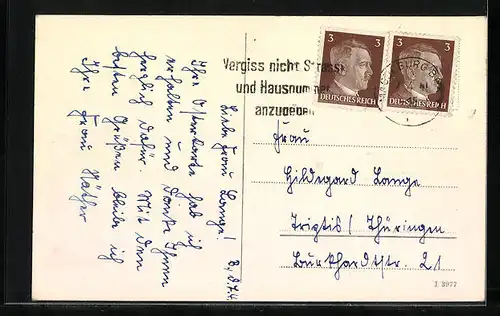 Vergiss nicht Strasse
und Hausnummer
anzugeben
3 3
3 3
DEUTSCHES REICH
DEUTSCHES REICH
Liebe Frau Lange!
Ihre Osterkarte hab ich
erhalten und danke Ihnen
herzlich dafür. Mit den
besten Grüßen bleibe ich
Ihre Frau Näther
Frau
Hildegard Lange
Triptis/Thüringen
Burkhardtstr. 21
I 3977